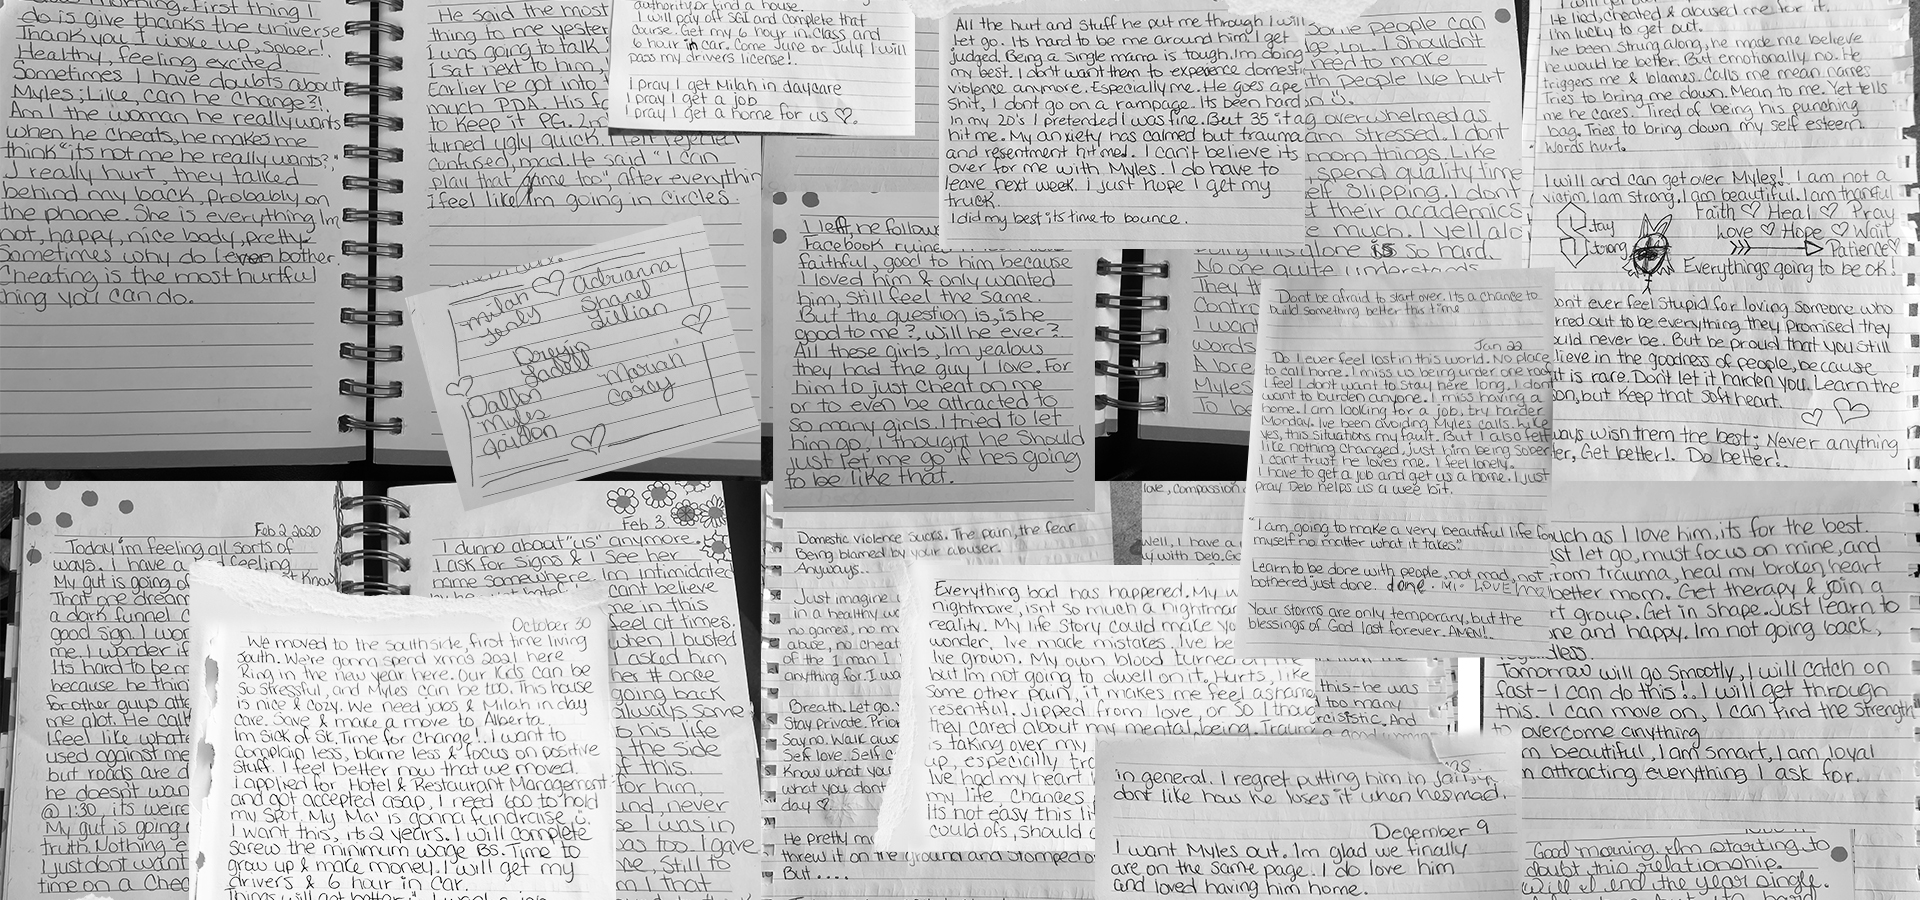 do is give thanks the universe
Thank you I woke up, sober!
Healthy, feeling excited.
Sometimes I have doubts about
Myles; Like, can he change?!
Am I the woman he really wants
when he cheats, he makes me
think "its not me he really wants?"
I really hurt, they talked
behind my back, probably on
the phone. She is everything Im
not, happy, nice body, pretty.
Sometimes why do I even bother
Cheating is the most hurtful
thing you can do.
He said the most
thing to me yester
I was going to talk
I sat next to him,
Earlier he got into
much PDA. His fa
to keep it PG.
turned ugly quick. I felt rejected
confused, mad. He said "I can
play that game too", after everythin
i feel like Im going in circles.
authority or find a house.
I will pay off SGI and complete that
course. Get my 6 hour in. Class and
6 hour in car. Come June or July I will
pass my drivers license!.
I pray I get Milah in daycare
I pray I get a job
I pray I get a home for us ♡.
milah ♡ Adrianna
Jerily Shanel
Lillian
Ladell
Dallon Mariah
Myles Carey
Jaidon
I left, he follow
Facebook ruine
faithful, good to him because
I loved him & only wanted
him, still feel the same.
But the question is, is he
good to me?, Will he ever?.
All these girls, Im jealous
they had the guy I love. For
him to just cheat on me
or to even be attracted to
so many girls. I tried to let
him go, I thought he should
just let me go if hes going
to be like that.
All the hurt and stuff he put me through I will
let go. Its hard to be me around him. I get
judged. Being a single mama is tough. Im doing
my best. I don't want them to experence domesti
violence anymore. Especially me. He goes ape
shit, I dont go on a rampage. Its been hard
In my 20's I pretended I was fine. But 35 it
hit me. My anxiety has calmed but trauma
and resentment hit med. I can't believe its
over for me with Myles. I do have to
leave next week. I just hope I get my
truck.
I did my best its time to bounce.
some people can
ge, LOL. I shouldn't
need to make
th people Ive hurt
ag overwhelmed as
am stressed. I dont
mom things. Like
spend quality time
elf slipping. I dont
t their academics
e much. I yell alo
doing this alone is so hard.
No one quite understands
They t
Contro
I want
words
A bre
Myles
To be
He lied, cheated & abused me for it.
I'm lucky to get out.
I've been strung along, he made me believe
he would be better. But emotionally no. He
triggers me & blames. Calls me mean names
Tries to bring me down. Mean to me. Yet tells
me he cares. Tired of being his punching
bag. Tries to bring down my self esteem.
Words hurt.
I will and can get over Myles!. I am not a
victim. I am strong. I am beautiful. I am thankful
Stay Strong
Faith ♡ Heal ♡ Pray
Love ♡ Hope ♡ Wait
Patience♡
Everythings going to be ok!
ont ever feel stupid for loving someone who
rned out to be everything they promised they
ould never be. But be proud that you still
lieve in the goodness of people, because
at is rare. Dont let it harden you. Learn the
on, but keep that soft heart.
ways wish them the best; Never anything
er, Get better!. Do better!.
Dont be afraid to start over. Its a chance to
build something better this time
Jan 22
Do I ever feel lost in this world. No place
to call home. I miss us being under one roof
I feel I dont want to stay here long. I dont
want to burden anyone. I miss having a
home. I am looking for a job, try harder
Monday. Ive been avoiding Myles calls.
yes, this situations my fault. But I also felt
like nothing changed, just I, im being sober
I cant trust he loves me. I feel lonely.
I have to get a job and get us a home. I just
pray Deb helps us a wee bit.
"I am, going to make a very beautiful life for
myself no matter what it takes"
Learn to be done with people, not mad, not
bothered just done. done.
Your storms are only temporary, but the
blessings of God last forever. AMEN!.
Feb 2 2020
Today im feeling all sorts of
ways. I have a feeling
My gut is going of
That me dream
a dark funnel c
good sign. I wor
me. I wonder if
Its hard to be m
because he thin
for other guys atte
me alot. He call
I feel like whate
used against me
but roads are d
he doesnt wan
@ 1:30, its weird
My gut is going
truth. Nothing e
I just dont want
time on a Chea
October 30
We moved to the southside, first time living
South. We're gonna spend xmas 2021 here
Ring in the new year here. Our kids can be
so stressful, and Myles can be too. This house
is nice & cozy. We need jobs & Milah in day
care. Save & make a move to Alberta.
im sick of St. Time for Change!. I want to
Complain less, blame less & focus on positive
stuff. I feel better now that we moved.
I applied for Hotel & Restaurant Management
and got accepted asap, I need 600 to hold
my spot. My Ma' is gonna fundraise
I want this, its 2 years. I will complete
screw the minimum wage Bs. Time to
grow up & make money. I will get my
drivers & 6 hour in car.
Feb 3
I dunno about "us" anymore.
I ask for signs & I see her
name somewhere. Im intimidated
cant believe
me in this
feel at times.
when I busted
I asked him
her # once
going back
always some
to his life
the side
of this.
for him,
and never
se I was in
as too. I gave
me, Still to
m I that
Domestic violence sucks. The pain, the fear
Being blamed by your abuser.
Anyways..
Just imagine
in a healthy w
no games, no m
abuse, no cheat
of the I man I
anything for. I wa
Breath. Let go.
Stay private. Prior
Say no. Walk awa
Self love. Self c
Know what you
what you dont
day ♡.
He pretty mu
threw it on the ground and stomped o
But....
love, compassion
well, I have a
y with Deb. Go
Everything bad has happened. My w
nightmare, isnt so much a nightmar
reality. My life story could make yo
wonder, Ive made mistakes, Ive be
Ive grown. My own blood turned on me
but Im not going to dwell on it. Hurts, like
some other pain, it makes me feel ashame
resentful. Jipped from love, or so I thoug
they cared about my mental, being. Traum
is taking over my
up, especially tra
I've had my heart
my life, chances
Its not easy this li
could ofs, should o
this - he was
too many
rcisistic. And
in general. I regret putting him in jail,
dont like how he loses it when hes mad.
December 9
I want Myles out. Im glad we finally
are on the same page. I do love him
and loved having him home.
uch as I love him, its for the best.
ust let go, must focus on mine, and
rom trauma, heal my broken heart
better mom. Get therapy & join a
rt group. Get in shape. Just learn to
ne and happy. Im not going back,
dless
Tomorrow will go smootly, I will catch on
fast - I can do this!. I will get through
this. I can move on, I can find the strength
to overcome anything
m beautiful, I am smart, I am loyal
m attracting everything I ask for.
Good morning. Im starting to
doubt this relationship.
Will I end the year single.